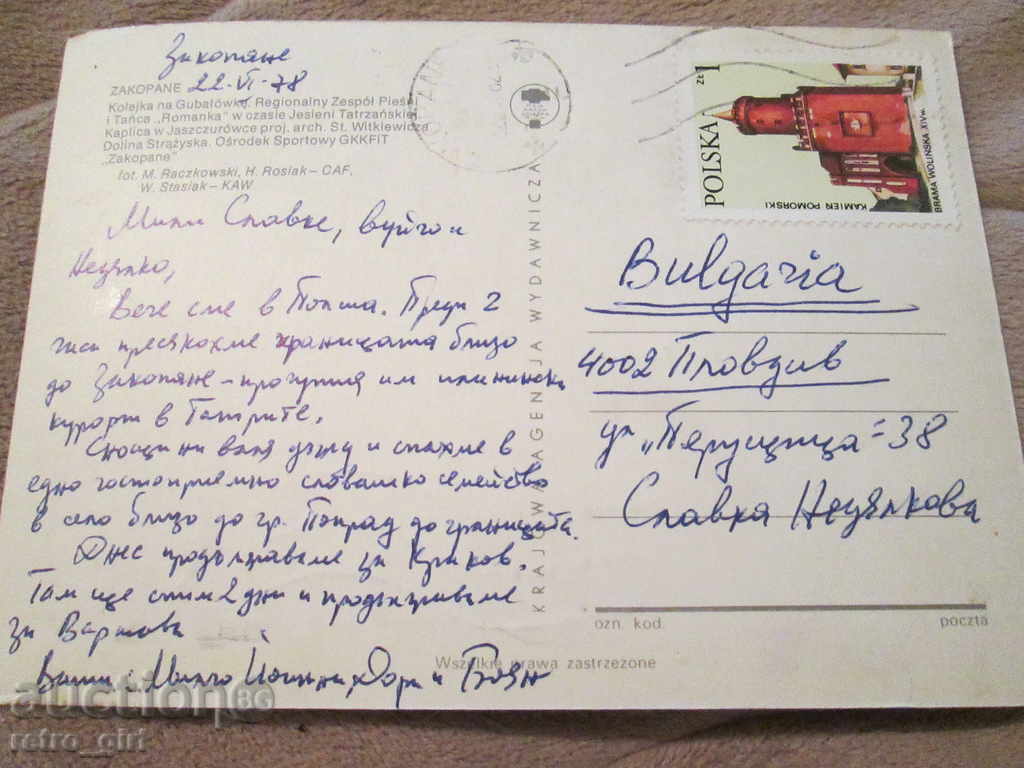 Закопане
ZAKOPANE 22-VI-78
Kolejka na Gubałówkę. Regionalny Zespół Pieśni
i Tańca „Romanka" w czasie Jesieni Tatrzańskiej
Kaplica w Jaszczurówce proj. arch. St. Witkiewicza
Dolina Strążyska. Ośrodek Sportowy GKKFiT
„Zakopane"
fot. M. Raczkowski, H. Rosiak – CAF,
W. Stasiak – KAW
Мили Славке, вуйчо и
Недялко,
Вече сме в Полша. Преди 2
часа пресякохме границата близо
до Закопане – прочутия им планински
курорт в Татрите.
Снощи ни валя дъжд и спахме в
едно гостоприемно словашко семейство
в село близо до гр. Попрад до границата.
Днес продължаваме за Краков.
Там ще спим 2 дни и продължаваме
за Варшава
Ваши: Мипчо Дори и Боян
KRAJOWA AGENCJA WYDAWNICZA
Wszelkie prawa zastrzeżone
POLSKA
1 zł
KAMIEŃ POMORSKI
BRAMA WOLIŃSKA XIV w.
Bulgaria
4002 Пловдив
ул „Перущица" - 38
Славка Недялкова
ozn. kod
poczta
auction BG
retro_girl